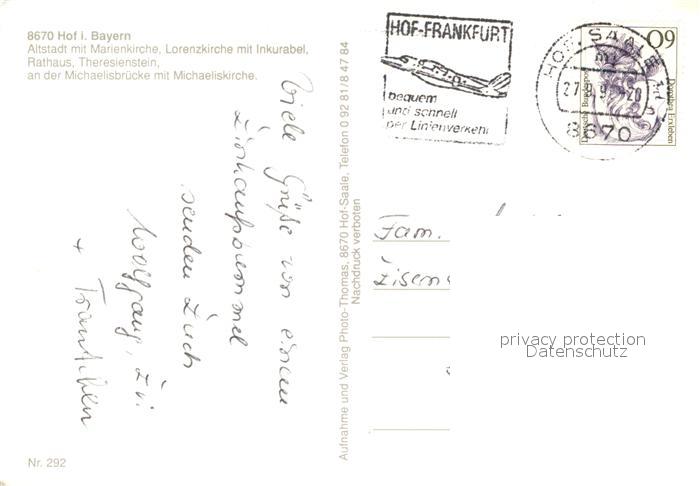 8670 Hof i. Bayern
Altstadt mit Marienkirche, Lorenzkirche mit Inkurabel,
Rathaus, Theresienstein,
an der Michaelisbrücke mit Michaeliskirche.
HOF-FRANKFURT
bequem
und schnell
per Linienverkehr
HOF, SAALE
8670
60
Deutsche Bundespost
Dorothea Erxleben
Viele Grüße von einem
Einkaufsbummel
senden Euch
Wolfgang,
+
Aufnahme und Verlag Photo-Thomas, 8670 Hof-Saale, Telefon 0 92 81/8 47 84
Nachdruck verboten
Fam.
privacy protection
Datenschutz
Nr. 292